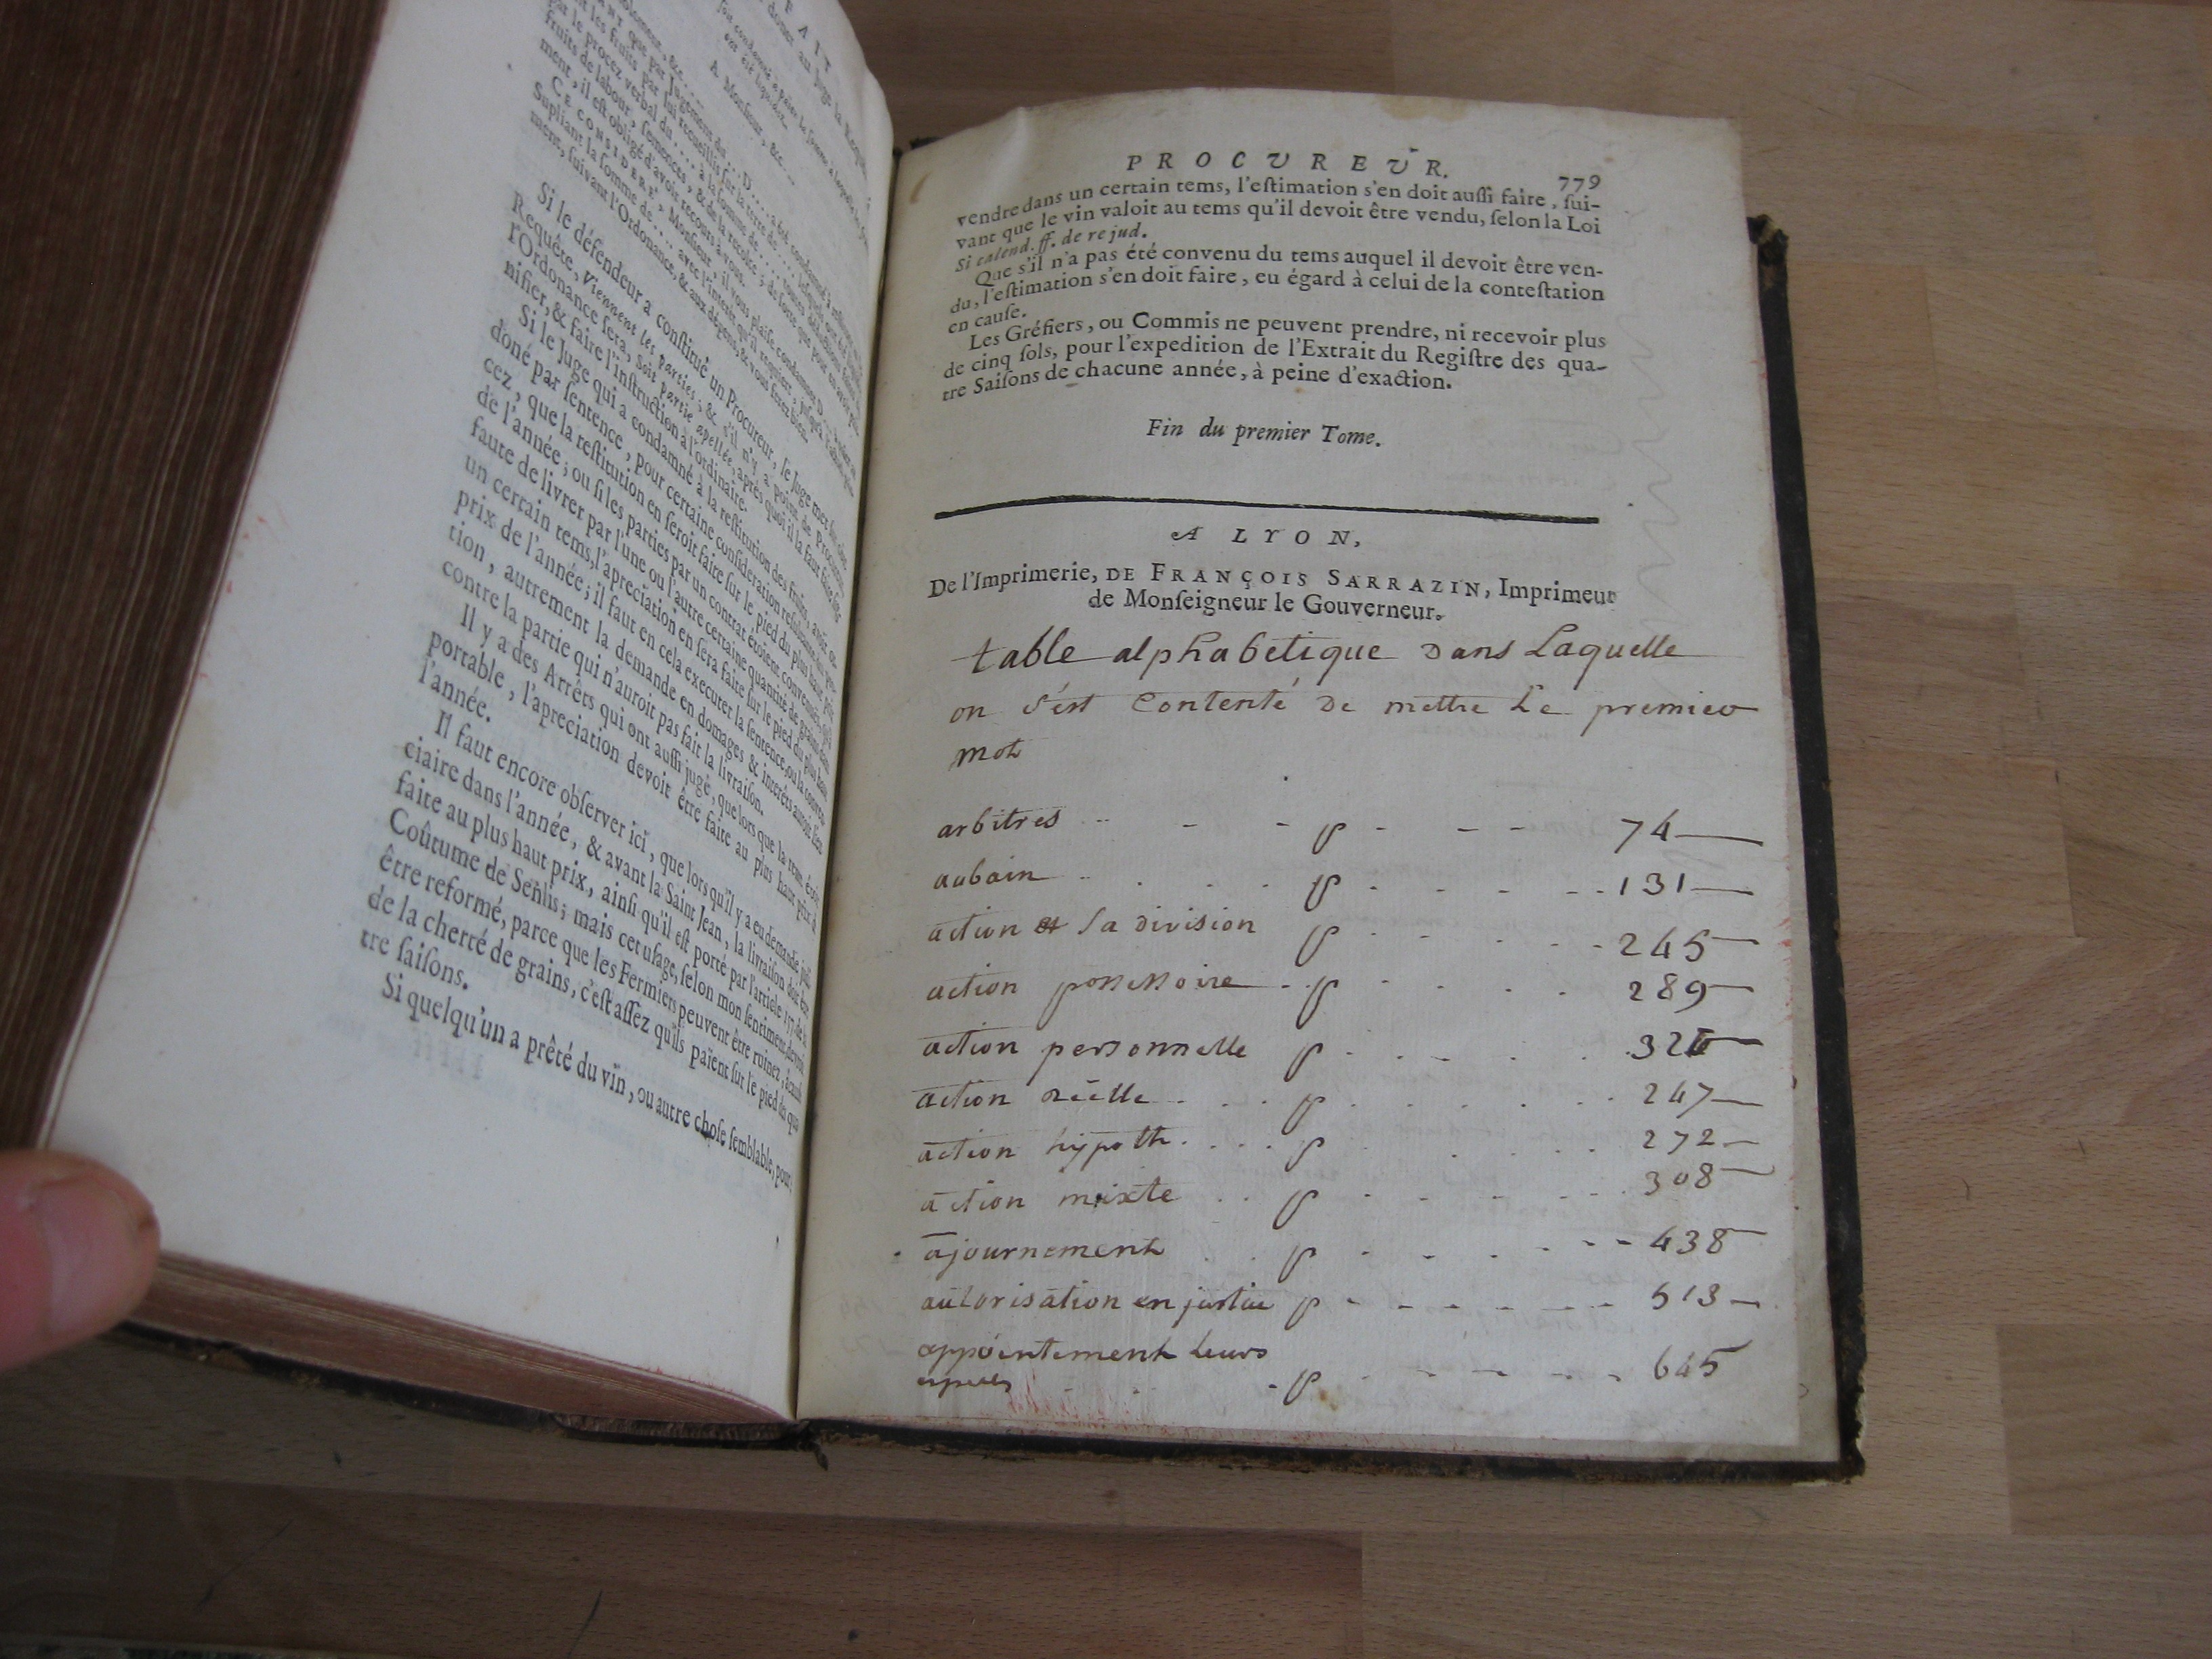 FAIT
A Monsieur, &c.
CE CONSIDERÉ, Monsieur, il vous plaise condamner D.
Supliant la somme de .... avec l'interêt
ment, suivant l'Ordonance, & aux dépens, & vous ferez bien.
Si le défendeur a constitué un Procureur, le Juge met sur cette
Requête, Vienent les parties; & s'il n'y a point de Procureur,
l'Ordonance sera, Soit partie apellée, aprés quoi il la faut faire
nifier, & faire l'instruction à l'ordinaire.
Si le Juge qui a condamné à la restitution des fruits,
doné par sentence, pour certaine consideration
cez, que la restitution en seroit faite sur le pied du plus haut prix
de l'année; ou si les parties par un contrat étoient convenuës, qu'à
faute de livrer par l'une ou l'autre certaine quantité de grains dans
un certain tems, l'apreciation en sera faite sur le pied du plus haut
prix de l'année; il faut en cela executer la sentence, ou la conven-
tion, autrement la demande en domages & interêts auroit lieu
contre la partie qui n'auroit pas fait la livraison.
Il y a des Arrêts qui ont aussi jugé, que lors que la rente étoit
portable, l'apreciation devoit être faite au plus haut prix de
l'année.
Il faut encore observer ici, que lors qu'il y a eu demande judi-
ciaire dans l'année, & avant la Saint Jean, la livraison doit être
faite au plus haut prix, ainsi qu'il est porté par l'article 157. de la
Coûtume de Senlis; mais cet usage, selon mon sentiment, devroit
être reformé, parce que les Fermiers peuvent être ruinez, à cause
de la cherté de grains, c'est assez qu'ils païent sur le pied des qua-
tre saisons.
Si quelqu'un a prêté du vin, ou autre chose semblable, pour
PROCUREUR. 779
vendre dans un certain tems, l'estimation s'en doit aussi faire, sui-
vant que le vin valoit au tems qu'il devoit être vendu, selon la Loi
Si calend. ff. de re jud.
Que s'il n'a pas été convenu du tems auquel il devoit être ven-
du, l'estimation s'en doit faire, eu égard à celui de la contestation
en cause.
Les Gréfiers, ou Commis ne peuvent prendre, ni recevoir plus
de cinq sols, pour l'expedition de l'Extrait du Registre des qua-
tre Saisons de chacune année, à peine d'exaction.
Fin du premier Tome.
A LYON,
De l'Imprimerie, DE FRANÇOIS SARRAZIN, Imprimeur
de Monseigneur le Gouverneur.
table alphabetique dans Laquelle
on s'est Contenté de mettre Le premier
mot
arbitres p 74
aubain p 131
action et sa division p 245
action possessoire p 289
action personnelle p
action réelle p 247
action hypoth. p 272
action mixte p 308
ajournement p 438
autorisation en justice p 513
appointement leurs
p 645